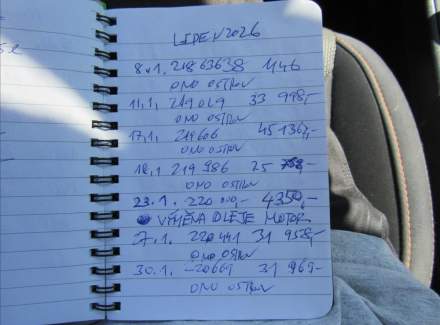 LEDEN 2026
8.1. 218 636 38 1146
OMO OSTROV
11.1. 219 029 33 998,-
OMO OSTROV
17.1. 219606 45 1367,-
OMO OSTROV
18.1. 219 986 25
OMO OSTROV
23.1. 220 000,- 4350,-
VÝMĚNA OLEJE MOTOR
27.1. 220 441 31 958,-
OMO OSTROV
30.1. 20669 31 969,-
OMO OSTROV